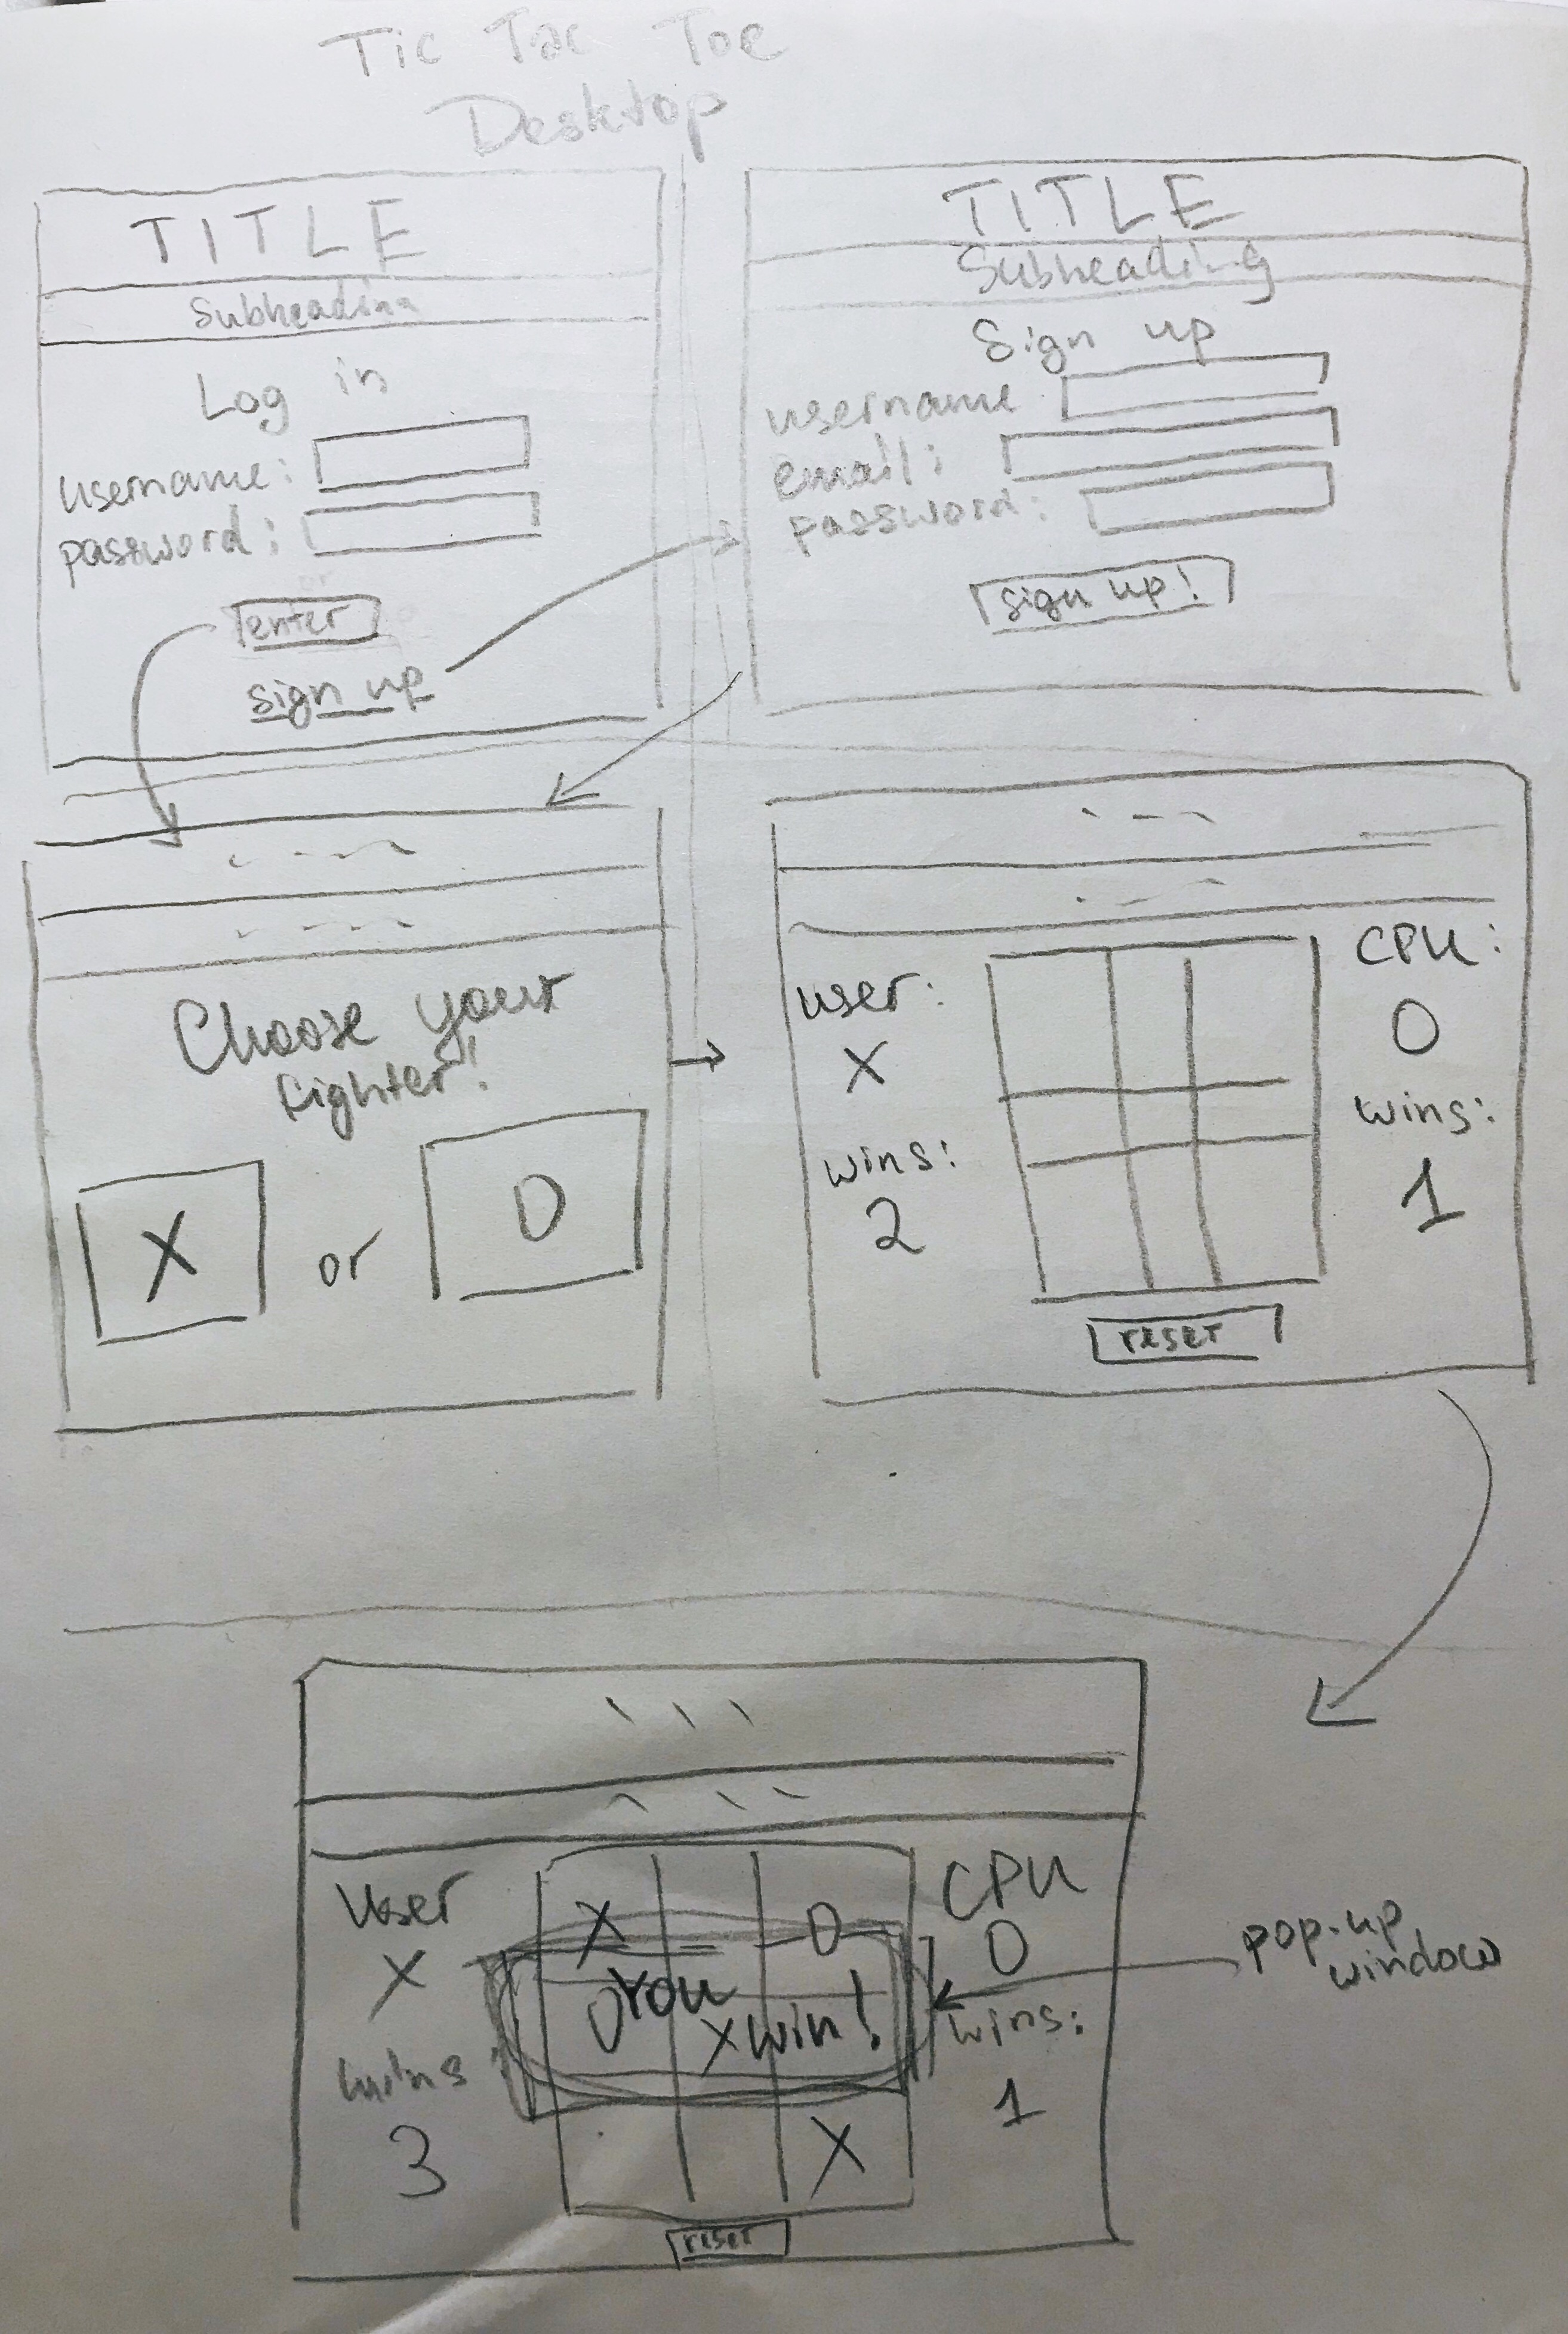 Tic Tac Toe
Desktop
TITLE
Subheading
Log in
username:
password:
enter
sign up
TITLE
Subheading
Sign up
username
email:
password:
sign up!
Choose your
fighter!
X or O
user:
X
wins:
2
reset
CPU:
O
wins:
1
User
X
wins
3
X O
O X
X
You
win!
reset
CPU
O
wins:
1
pop-up
window